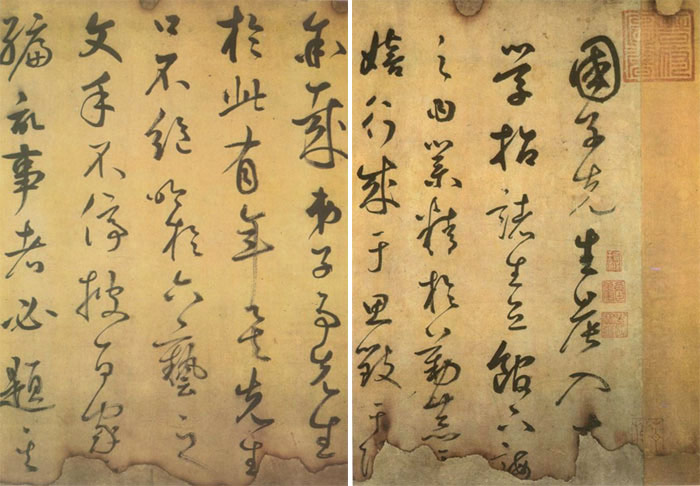 國子先生晨入
學招諸生立館下誨
之曰業精於勤荒于
嬉行成于思毀于
余哉弟子事先生
於此有年矣先生
口不絕吟於六藝之
文手不停披百家
編記事者必題其